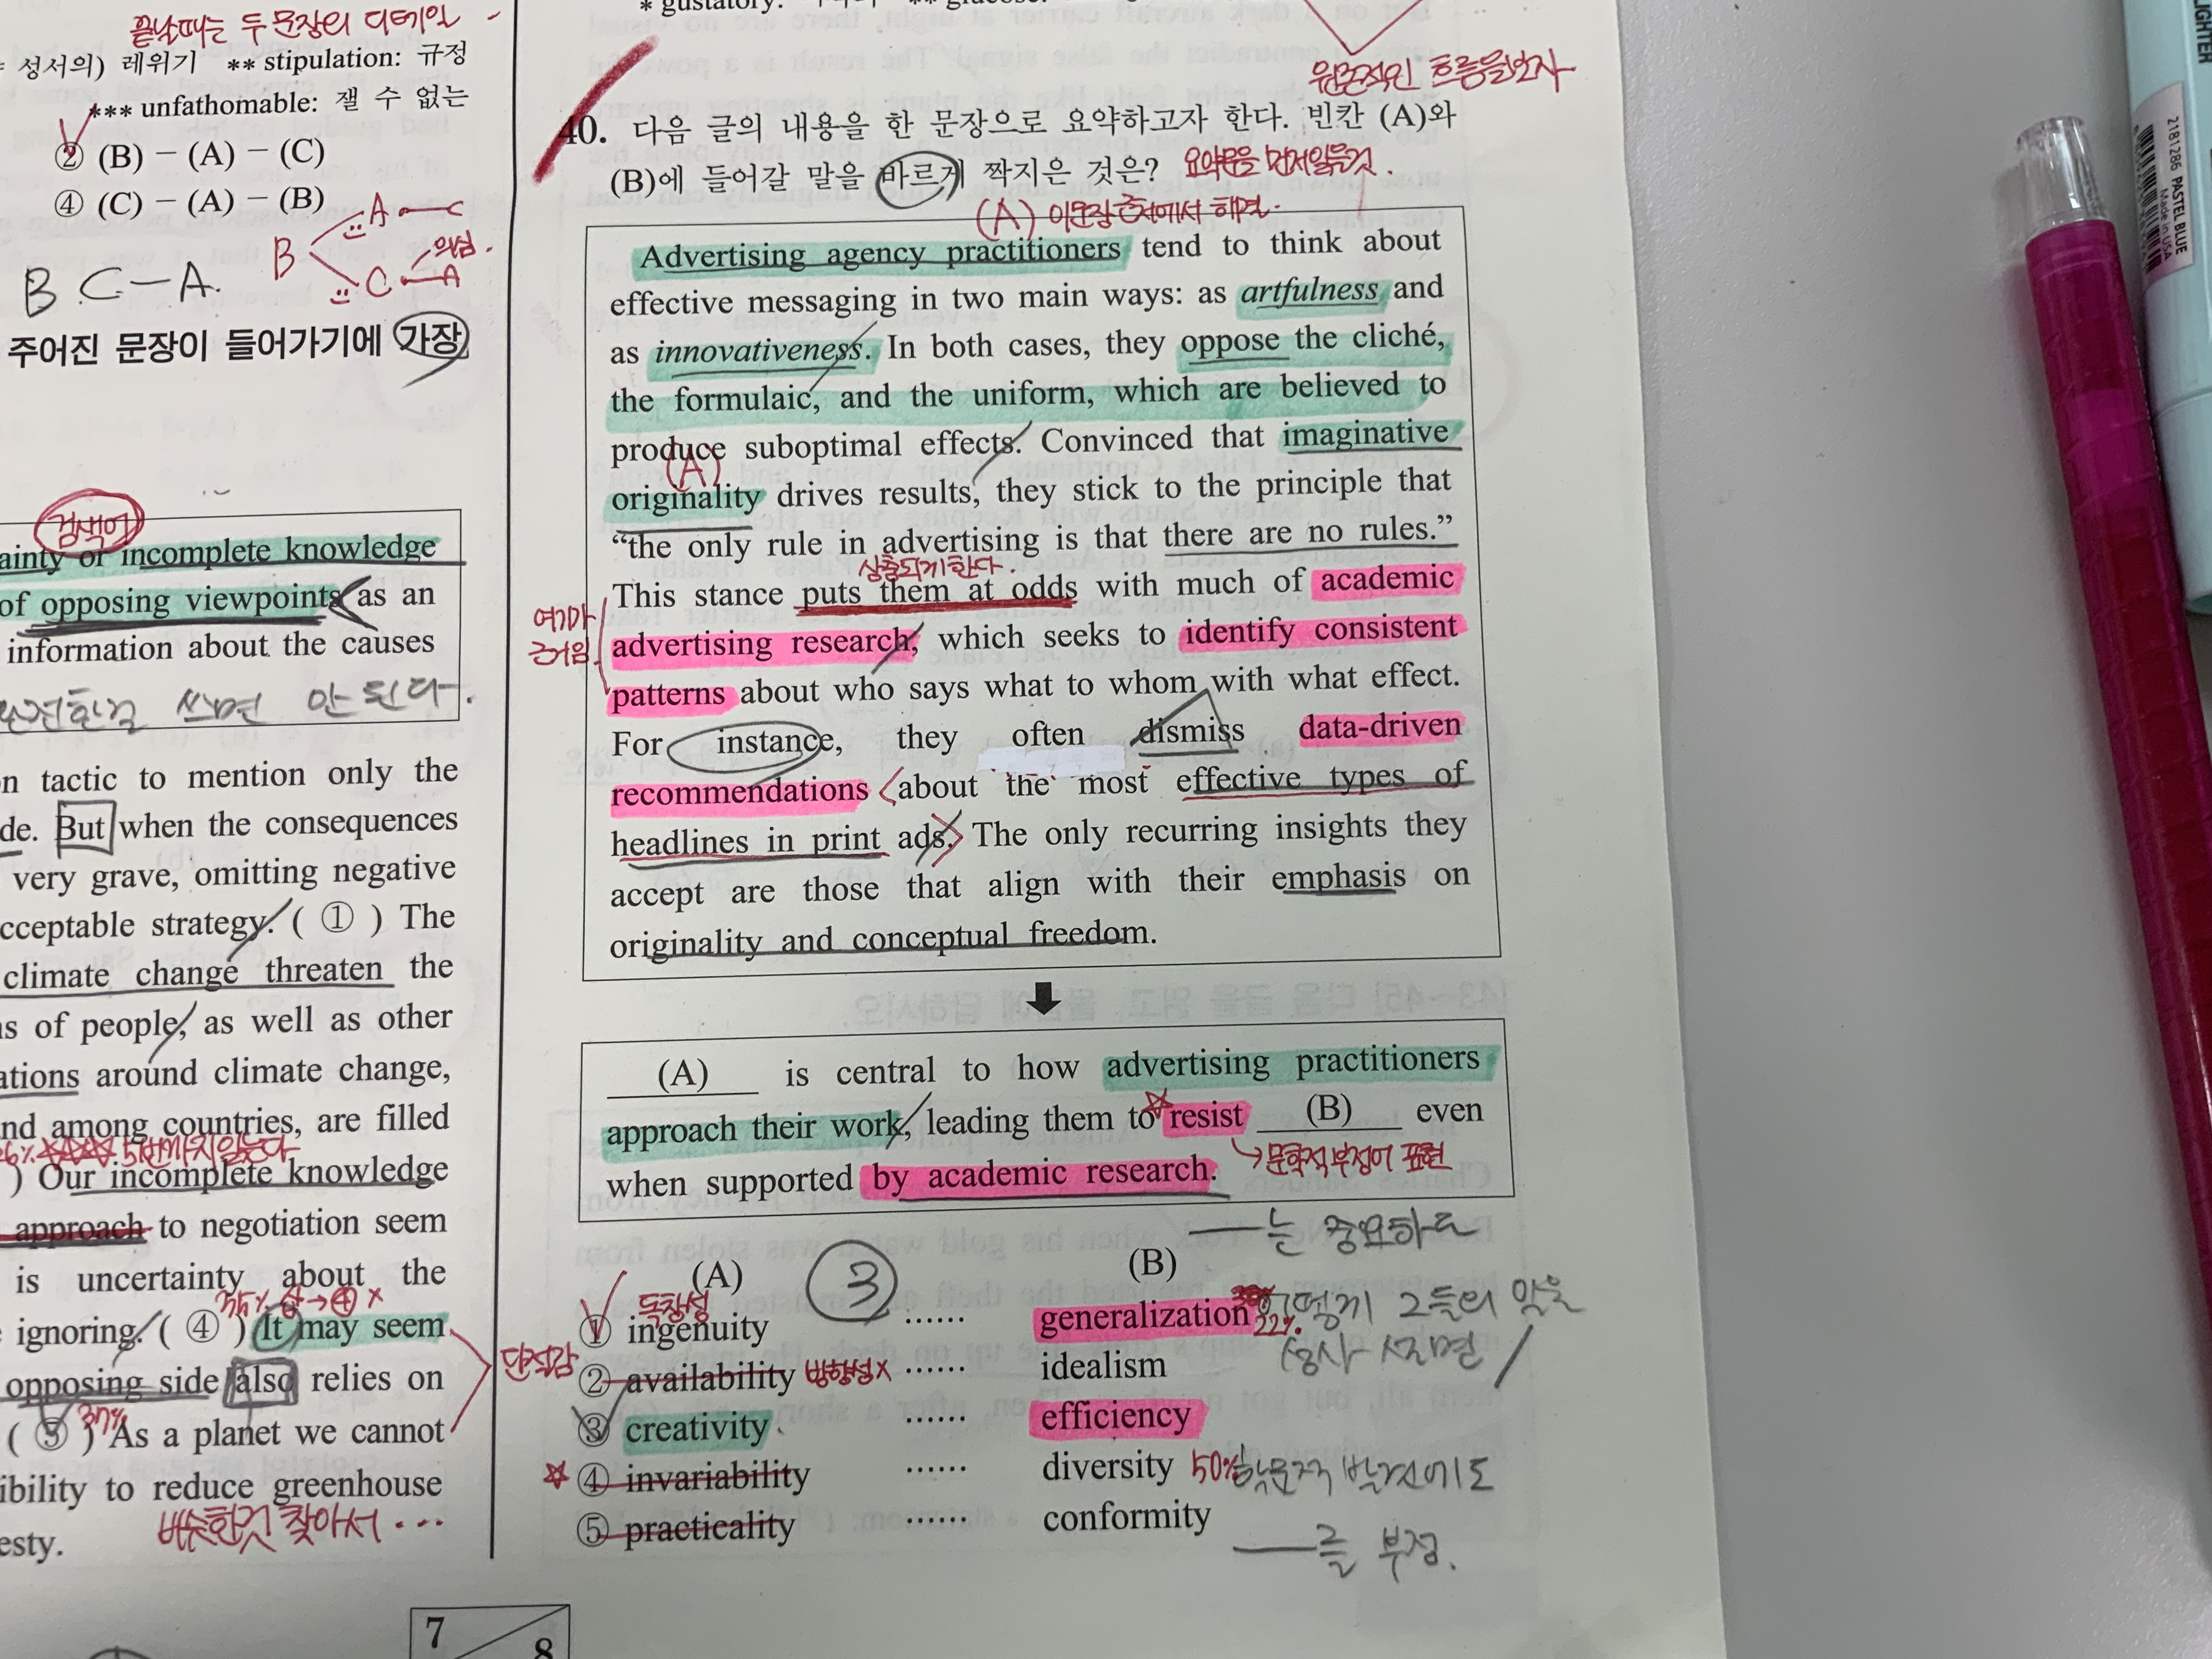 * gustatory:
끝날때는 두 문장의 디테일
성서의) 레위기 ** stipulation: 규정
*** unfathomable: 잴 수 없는
② (B) − (A) − (C)
④ (C) − (A) − (B)
B A − C
C − A
의심.
B C − A.
주어진 문장이 들어가기에 가장
검색어
ainty or incomplete knowledge
of opposing viewpoints as an
information about the causes
쓰면 안 된다.
n tactic to mention only the
de. But when the consequences
very grave, omitting negative
cceptable strategy. ( ① ) The
climate change threaten the
ns of people, as well as other
ations around climate change,
nd among countries, are filled
) Our incomplete knowledge
approach to negotiation seem
is uncertainty about the
ignoring. ( ④ ) It may seem
opposing side also relies on
( ⑤ ) 37% As a planet we cannot
ibility to reduce greenhouse
esty.
비슷한것 찾아서 ...
단서감
흐름을보자
40. 다음 글의 내용을 한 문장으로 요약하고자 한다. 빈칸 (A)와
(B)에 들어갈 말을 바르게 짝지은 것은? 요약문을 먼저읽을것.
(A) 이문장 에서 해결.
Advertising agency practitioners tend to think about
effective messaging in two main ways: as artfulness and
as innovativeness. In both cases, they oppose the cliché,
the formulaic, and the uniform, which are believed to
produce suboptimal effects. Convinced that imaginative
(A)
originality drives results, they stick to the principle that
“the only rule in advertising is that there are no rules.”
상충되게한다.
This stance puts them at odds with much of academic
여기가
근거임
advertising research, which seeks to identify consistent
patterns about who says what to whom with what effect.
For instance, they often dismiss data-driven
recommendations about the most effective types of
headlines in print ads. The only recurring insights they
accept are those that align with their emphasis on
originality and conceptual freedom.
(A) is central to how advertising practitioners
approach their work, leading them to resist (B) even
when supported by academic research.
부정어 표현
는 중요하고
(A) ③ (B)
독창성
① ingenuity ...... generalization 22%.
어떻게 그들의 일을
② availability 방향성x ...... idealism
③ creativity ...... efficiency
④ invariability ...... diversity 50%
⑤ practicality ...... conformity
를 부정.
7
8
2181286 PASTEL BLUE
Made in USA
LIGHTER